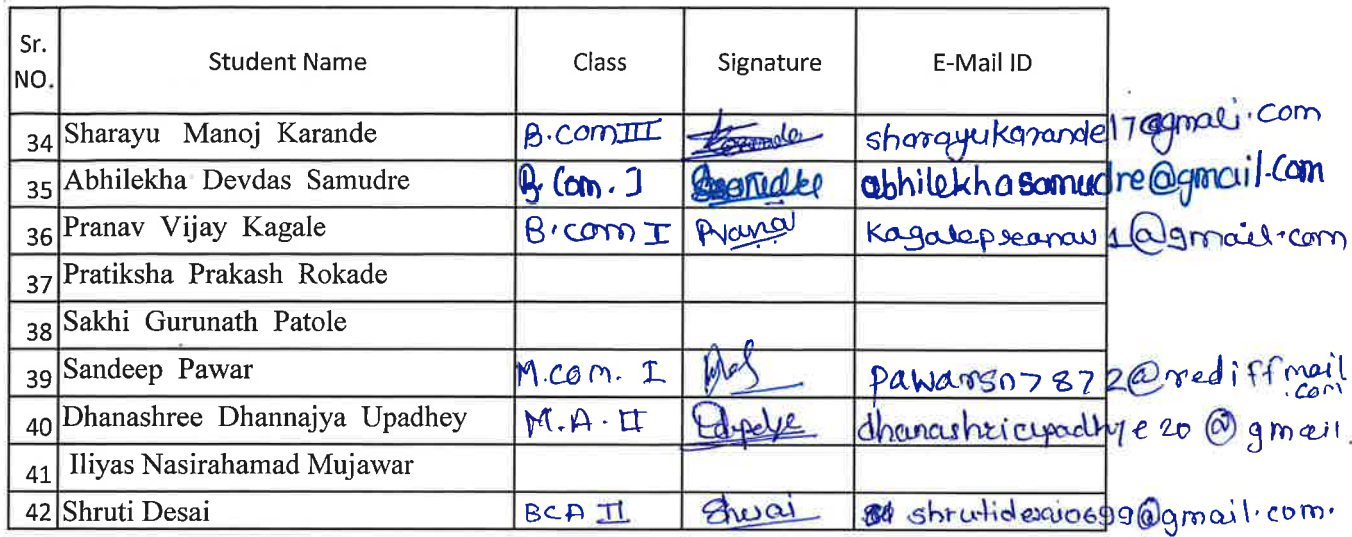 Sr. NO. Student Name Class Signature E-Mail ID
34 Sharayu Manoj Karande B.com III sharayukarande17@gmali.com
35 Abhilekha Devdas Samudre B. Com. I abhilekhasamudre@gmail.com
36 Pranav Vijay Kagale B.com I Pranav kagalepranav1@gmail.com
37 Pratiksha Prakash Rokade
38 Sakhi Gurunath Patole
39 Sandeep Pawar M.com. I pawarsn7872@rediffmail.com
40 Dhanashree Dhannajya Upadhey M.A. II dhanashriupadhye20@gmail.
41 Iliyas Nasirahamad Mujawar
42 Shruti Desai BCA II shrutidesai0699@gmail.com.